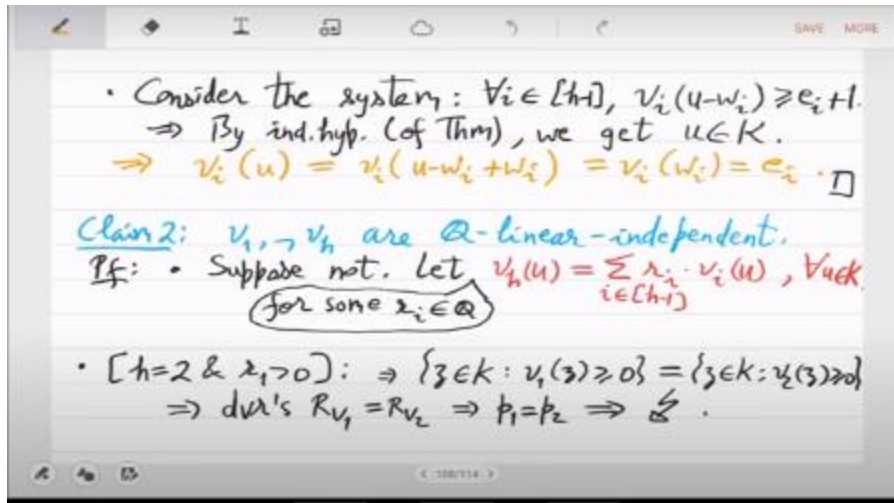 SAVE MORE
• Consider the system: ∀i ∈ [h-1], v_i(u-w_i) ≥ e_i+1.
⇒ By ind.hyp. (of Thm), we get u ∈ K.
⇒ v_i(u) = v_i(u-w_i+w_i) = v_i(w_i) = e_i. □
Claim 2: v_1,⁊ v_h are Q-linear-independent.
Pf: • Suppose not. Let v_h(u) = Σ_{i∈[h-1]} r_i · v_i(u), ∀u∈K
for some r_i ∈ Q
• [h=2 & r_1>0]: ⇒ {z∈K : v_1(z) ≥ 0} = {z∈K : v_2(z) ≥ 0}
⇒ dvr's R_{v_1} = R_{v_2} ⇒ p_1 = p_2 ⇒ ↯.